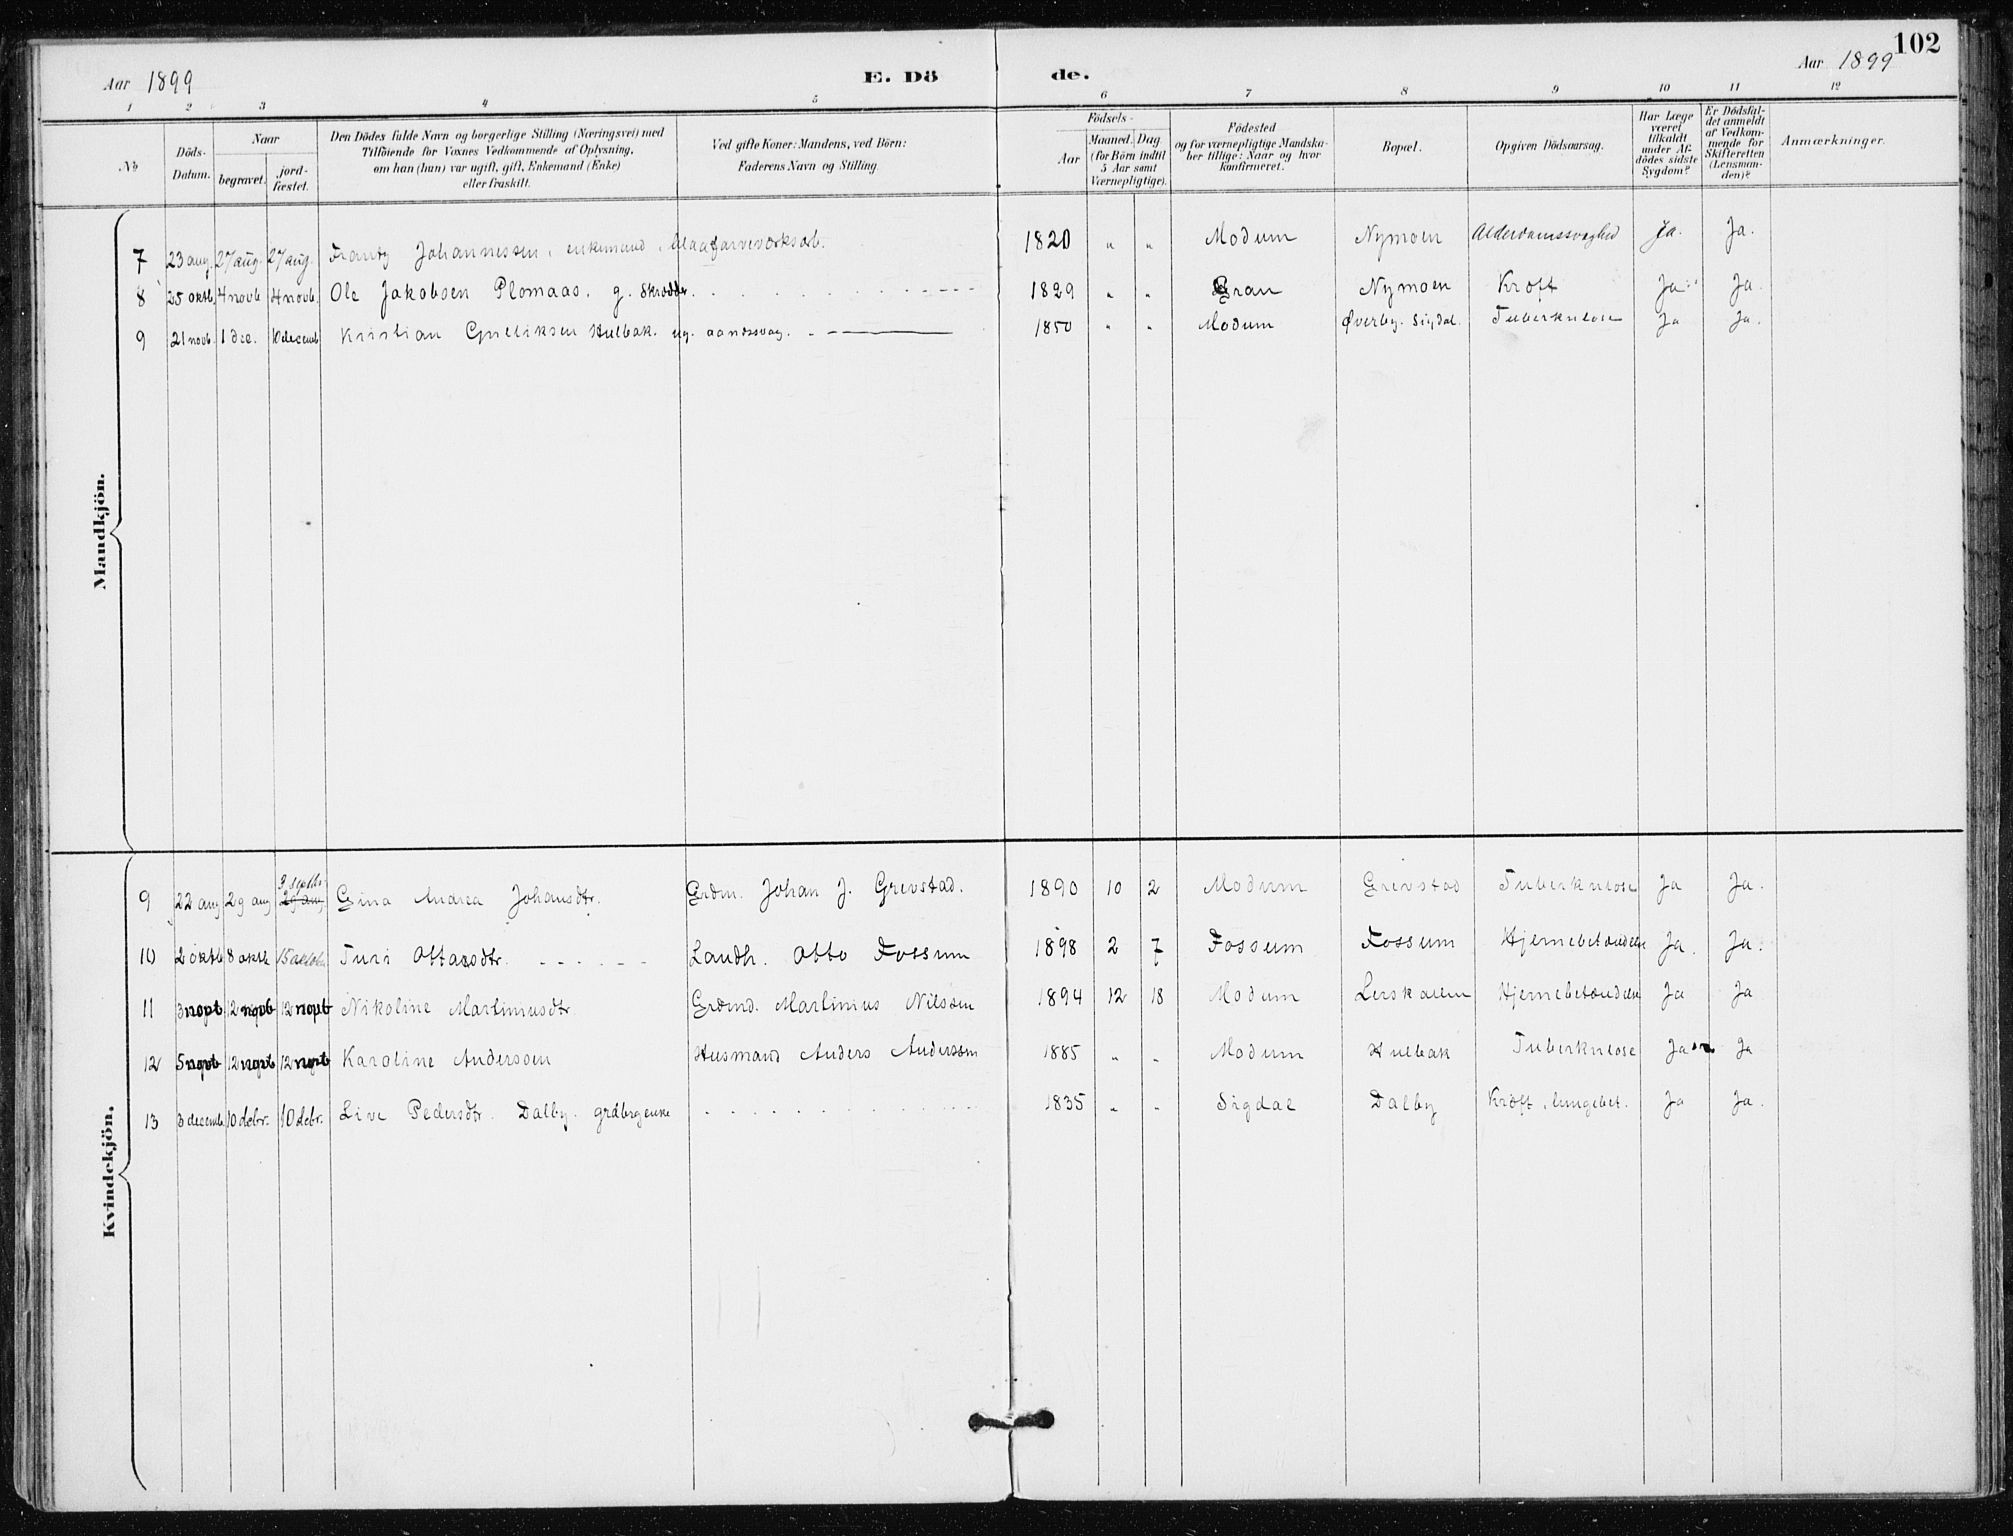 102
Aar 1899 E. Dö de. Aar 1899
1 2 3 4 5 6 7 8 9 10 11 12
No
Döds-Datum.
Naar
begravet.
jord-fæstet.
Den Dödes fulde Navn og borgerlige Stilling (Næringsvei) med
Tilföiende for Voxnes Vedkommende af Oplysning,
om han (hun) var ugift, gift, Enkemand (Enke)
eller fraskilt.
Ved gifte Koner: Mandens, ved Börn:
Faderens Navn og Stilling.
Födsels-
Aar
Maaned. Dag
(for Börn indtil
5 Aar samt
Værnepligtige).
Födested
og for værnepligtige Mandska-
ber tillige: Naar og hvor
konfirmeret.
Bopæl.
Opgiven Dödsaarsag.
Har Læge
været
tilkaldt
under Af-
dödes sidste
Sygdom?
Er Dödsfal-
det anmeldt
af Vedkom-
mende for
Skifteretten
(Lensman-
den)?
Anmærkninger.
Mandkjön.
7 23 aug. 27 aug. 27 aug. Frantz Johannessen, enkemand, Blaafarveværksarb. 1820 " " Modum Nymoen Alderdomssvaghed Ja. Ja.
8 25 oktb. 4 novb. 4 novb. Ole Jakobsen Plomaas, g. Skrædder. 1829 " " Gran Nymoen Kræft Ja Ja.
9 21 novb. 1 dec. 10 decemb Kristian Gulliksen Hulbak. ug. aandssvag. 1850 " " Modum Øverby. Sigdal. Tuberkulose Ja Ja.
Kvindekjön.
3 septbr.
9 22 aug 29 aug 29 aug. Gina Andrea Johansdtr. Grdm. Johan J. Grevstad. 1890 10 2 Modum Grevstad Tuberkulose Ja Ja.
10 2 oktb 8 oktb 15 oktober Turi Ottarsdtr. Landh. Otto Fossum 1898 2 7 Fossum Fossum Hjernebetændelse Ja. Ja.
11 3 novb 12 novb 12 novb Nikoline Martiniusdtr Grdmd. Martinius Nilssen 1894 12 18 Modum Lerskallen Hjernebetændelse Ja Ja
12 5 novb 12 novb 12 novb Karoline Anderssen Husmand Anders Anderssen 1885 " " Modum Hulbak Tuberkulose Ja Ja
13 3 decemb 10 debr. 10 debr. Live Pedersdtr. Dalby. grdbrgenke 1835 " " Sigdal Dalby Kræft, lungebet. Ja Ja.